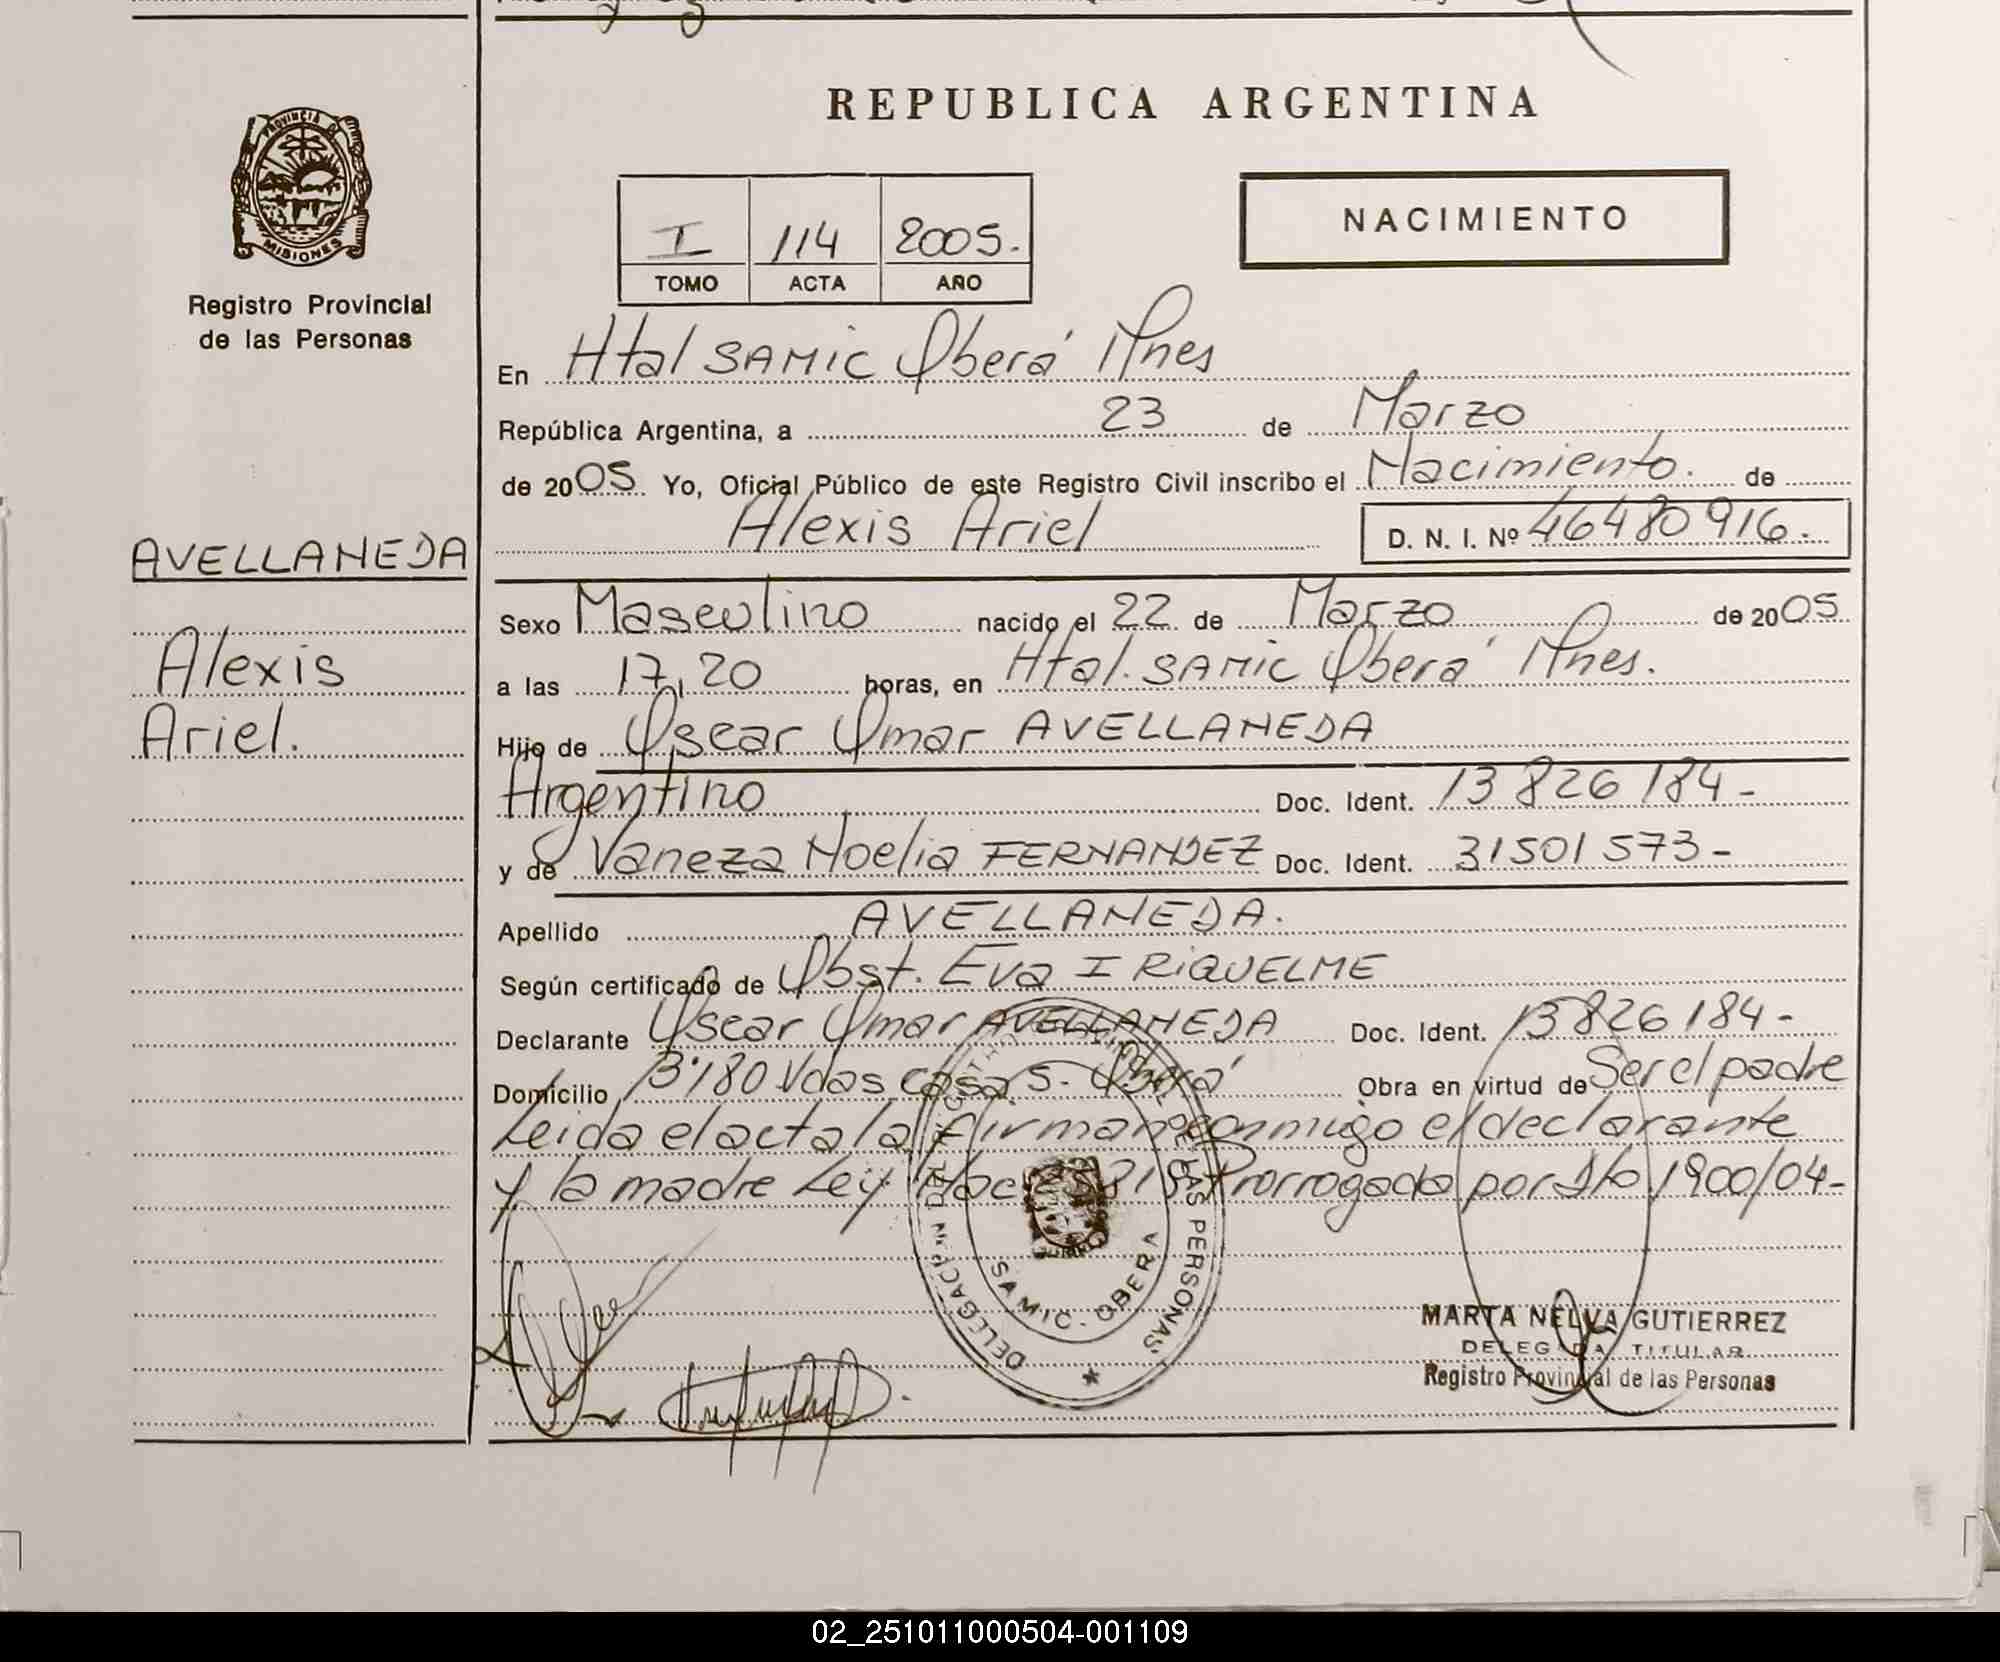 REPUBLICA ARGENTINA
PROVINCIA DE
MISIONES
Registro Provincial
de las Personas
I 114 2005.
TOMO ACTA AÑO
NACIMIENTO
En Htal SAMIC Oberá Mnes
República Argentina, a 23 de Marzo
de 2005 Yo, Oficial Público de este Registro Civil inscribo el Nacimiento. de
Alexis Ariel D. N. I. Nº 46480916.
AVELLANEDA
Alexis
Ariel.
Sexo Masculino nacido el 22 de Marzo de 2005
a las 17,20 horas, en Htal. SAMIC Oberá Mnes.
Hijo de Oscar Omar AVELLANEDA
Argentino Doc. Ident. 13826184-
y de Vaneza Noelia FERNANDEZ Doc. Ident. 31501573-
Apellido AVELLANEDA.
Según certificado de Obst. Eva I RIQUELME
Declarante Oscar Omar AVELLANEDA Doc. Ident. 13826184-
Domicilio Bº180 Vdas casa 5- Oberá Obra en virtud de Ser el padre
Leida el acta la firman conmigo el declarante
y la madre Ley Nac Prorrogada por Dto 1900/04-
DELEGACION DEL REGISTRO PROVINCIAL DE LAS PERSONAS
SAMIC - OBERA
MARTA NELVA GUTIERREZ
DELEGADA TITULAR
Registro Provincial de las Personas
02_251011000504-001109